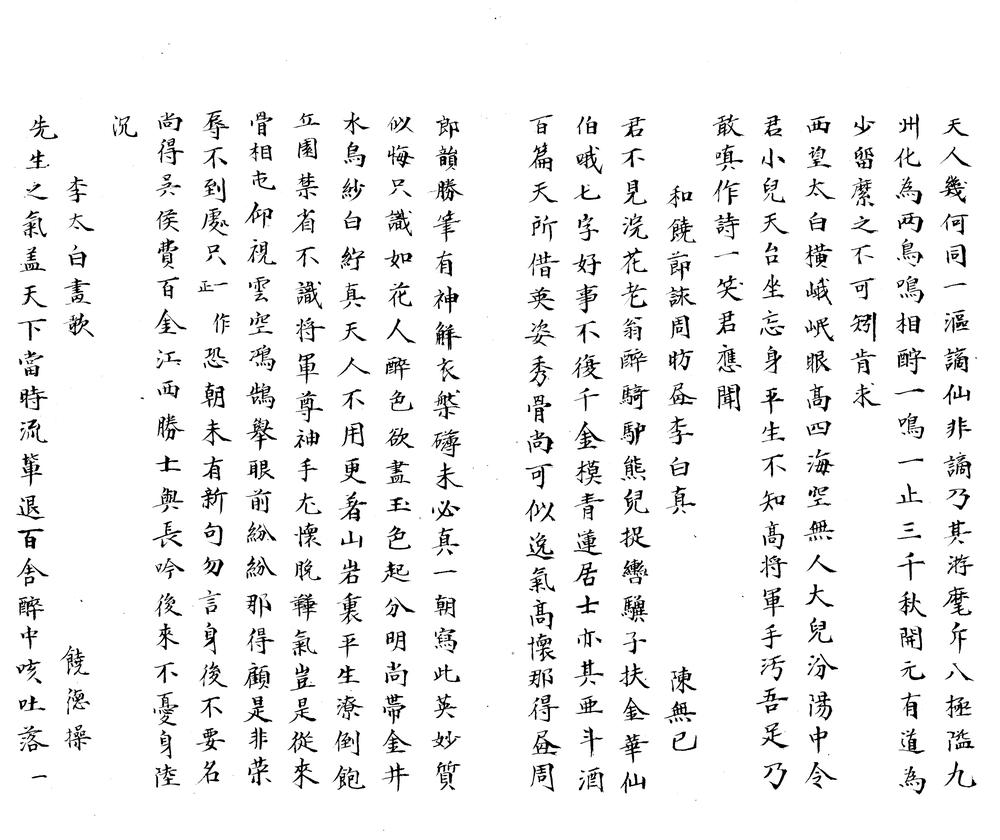 天人幾何同一漚謫仙非謫乃其游麾斥八極隘九
州化為兩鳥鳴相酧一鳴一止三千秋開元有道為
少留縻之不可矧肯求
西望太白橫峨岷眼高四海空無人大兒汾陽中令
君小兒天台坐忘身平生不知高將軍手汚吾足乃
敢嗔作詩一笑君應聞
和饒節詠周昉畫李白真 陳無己
君不見浣花老翁醉騎驢熊兒捉轡驥子扶金華仙
伯哦七字好事不復千金模青蓮居士亦其亞斗酒
百篇天所借英姿秀骨尚可似逸氣高懷那得畫周
郎韻勝筆有神解衣槃礴未必真一朝寫此英妙質
似悔只識如花人醉色欲盡玉色起分明尚帶金井
水烏紗白紵真天人不用更著山岩裏平生潦倒飽
丘園禁省不識將軍尊神手尢懷脫鞾氣豈是從來
骨相屯仰視雲空鴻鵠舉眼前紛紛那得顧是非榮
辱不到處只一作正恐朝來有新句勿言身後不要名
尚得吳侯費百金江西勝士與長吟後來不憂身陸
沉
李太白畫歌 饒德操
先生之氣盖天下當時流輩退百舍醉中咳吐落一